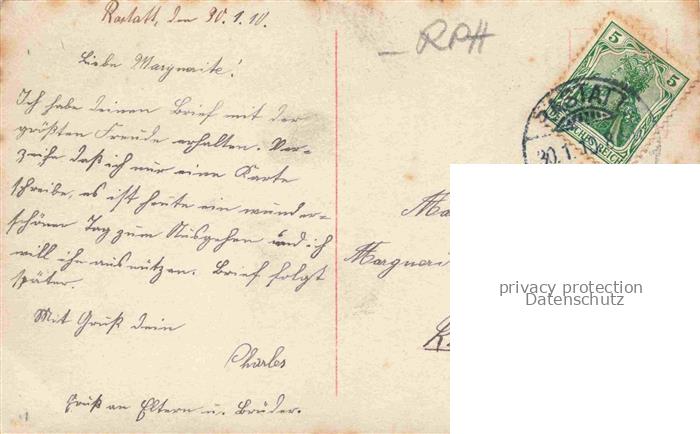 Rastatt, den 30.1.10.
Liebe Marguerite!
Ich habe deinen Brief mit der
größten Freude erhalten. Ver-
zeihe daß ich nur eine Karte
schreibe, es ist heute ein wunder-
schöner Tag zum Ausgehen und ich
will ihn ausnützen. Brief folgt
später.
Mit Gruß dein
Charles
Gruß an Eltern u. Brüder.
RPH
5 5
DEUTSCHES REICH
RASTATT
30.1.
Ma
Margueri
privacy protection
Datenschutz